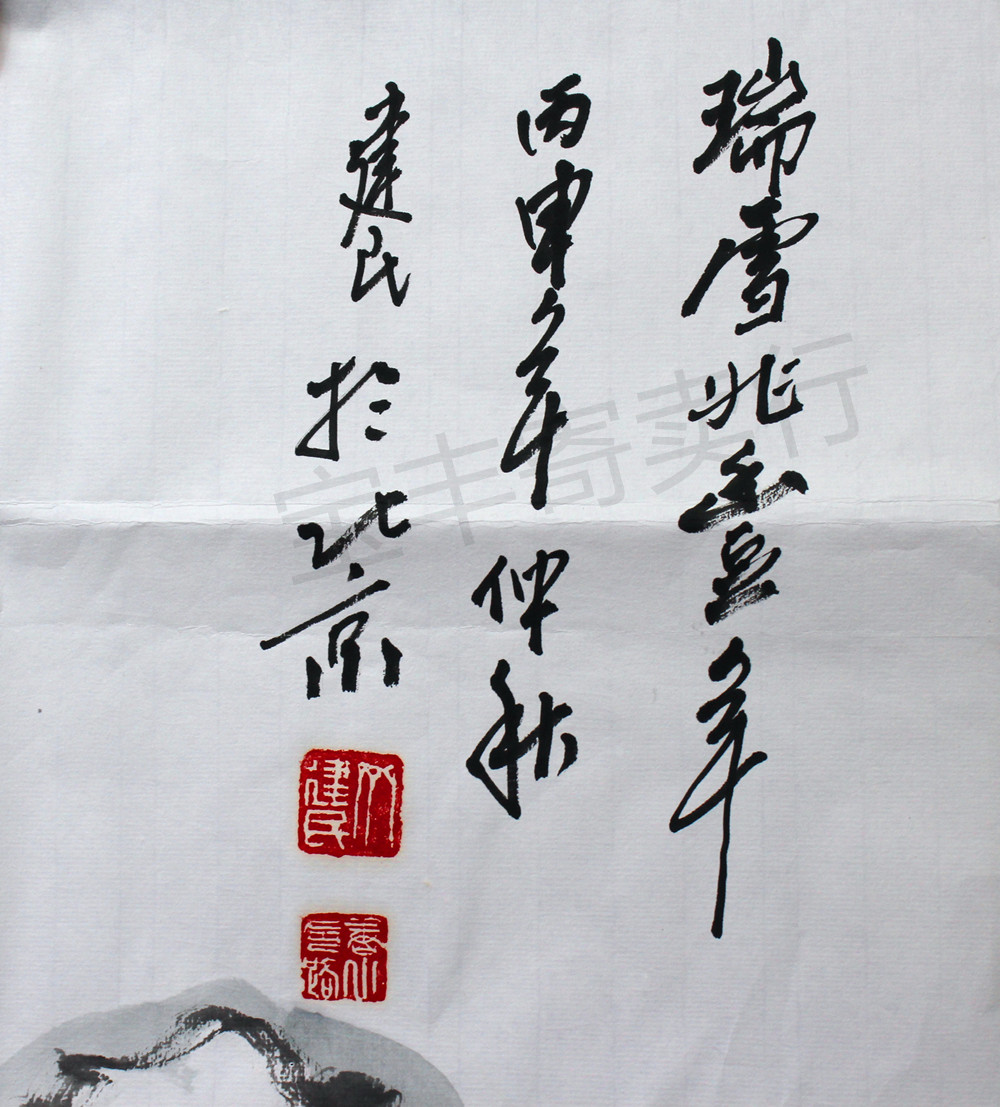 瑞雪兆豐年
丙申年仲秋
建民於北京
建民
宝丰寄卖行